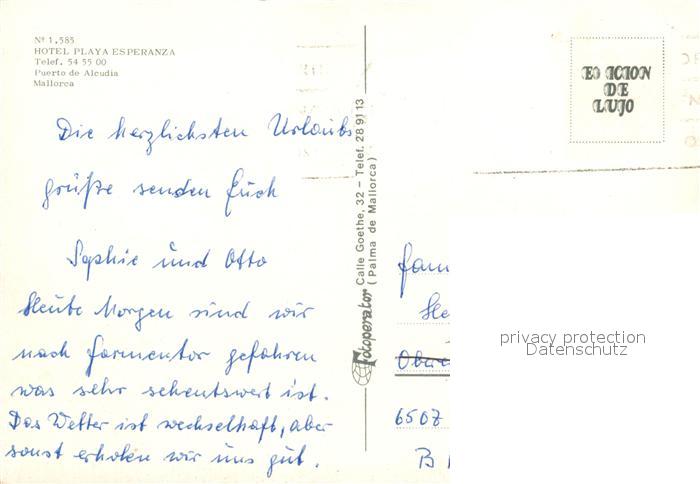 Nº 1.585
HOTEL PLAYA ESPERANZA
Telef. 54 55 00
Puerto de Alcudia
Mallorca
Die herzlichsten Urlaubs
grüße senden Euch
Sophie und Otto
Heute Morgen sind wir
nach Formentor gefahren
was sehr sehenswert ist.
Das Wetter ist wechselhaft, aber
sonst erholen wir uns gut.
Fotoperator Calle Goethe, 32 - Telef. 28 91 13
(Palma de Mallorca)
EDICION
DE
LUJO
Fam
He
Ober
6507
B
privacy protection
Datenschutz